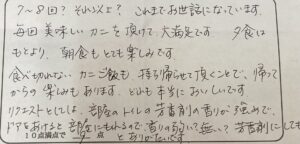 7〜8回？それ以上？これまでお世話になっています。
毎回美味しいカニを頂けて、大満足です 夕食は
もとより、朝食もとても楽しみです。
食べ切れない カニご飯も、持ち帰らせて頂くことで、帰って
からの楽しみもあります。とれも本当においしいです
リクエストとしては、部屋のトイレの芳香剤の香りが強めで、
ドアをあけると部屋にもれるので、香りの弱い？無い？芳香剤にしても
10点満点で 点 とありがたいです